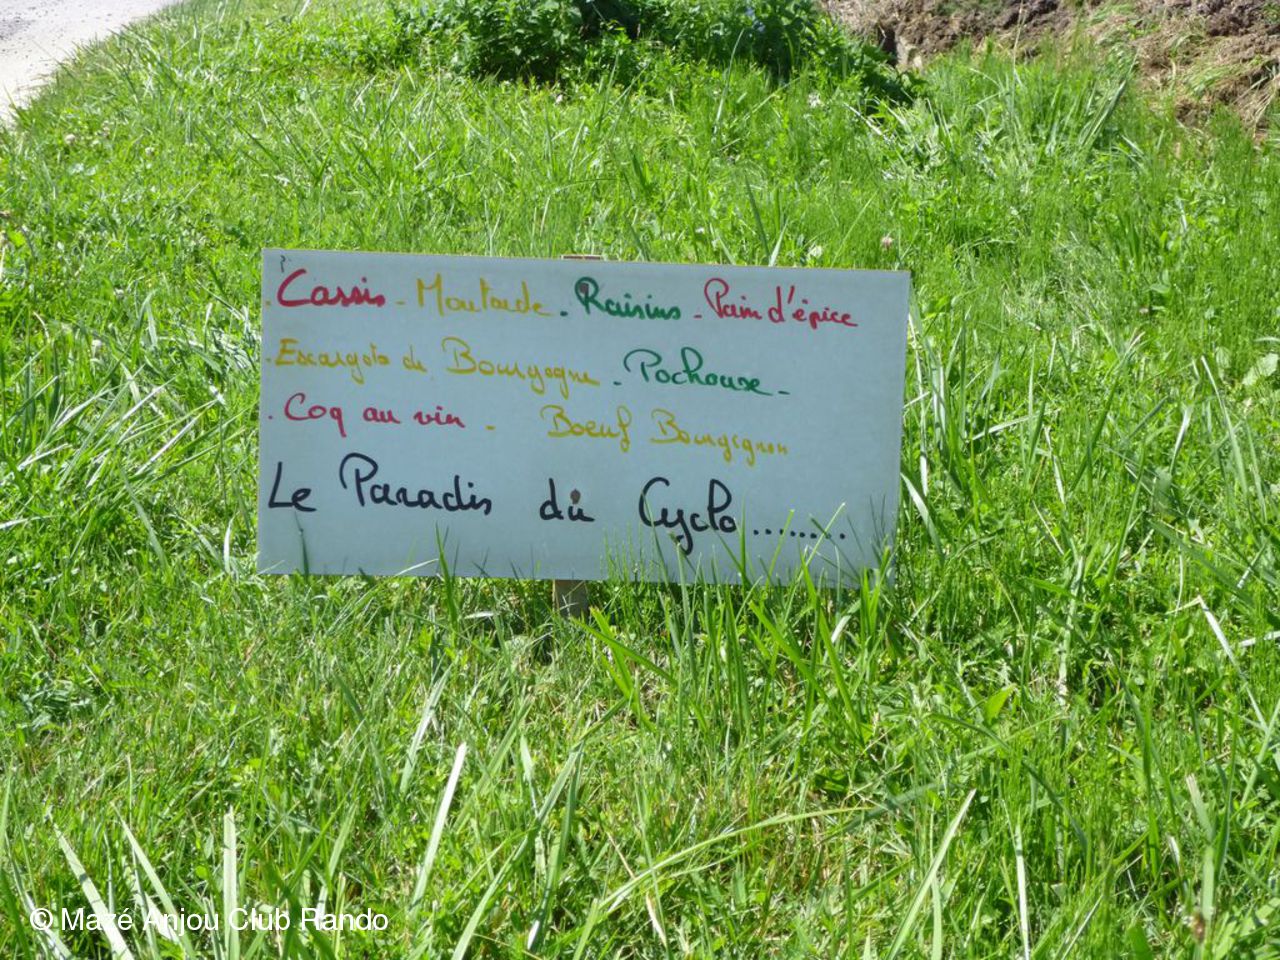 . Cassis - Moutarde . Raisins - Pain d'épice
. Escargots de Bourgogne . Pochouse -
. Coq au vin - Boeuf Bourgignon
Le Paradis du Cyclo ........
© Mazé Anjou Club Rando